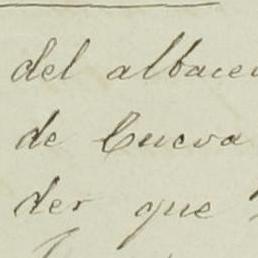 del albacea
de Cueva
der que